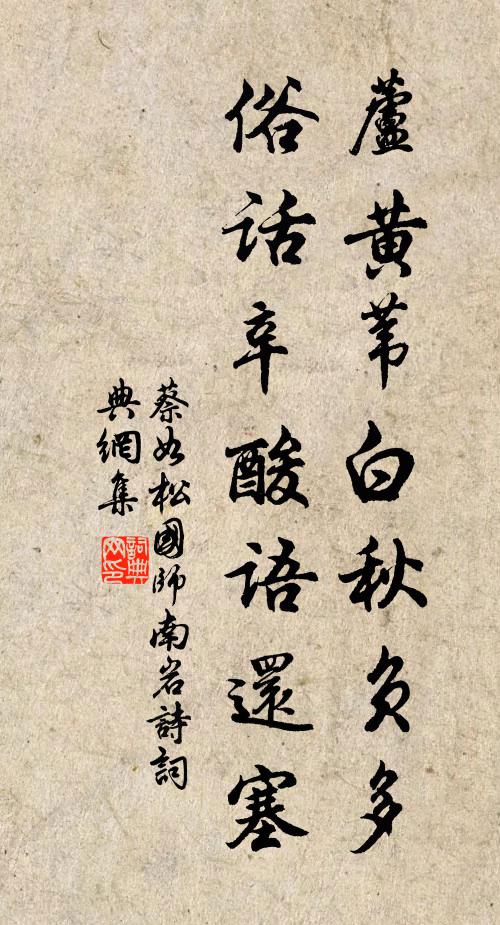 蘆黃葦白秋負多
俗话辛酸语還塞
蔡如松國師南岩詩詞
典網集
詞典网印